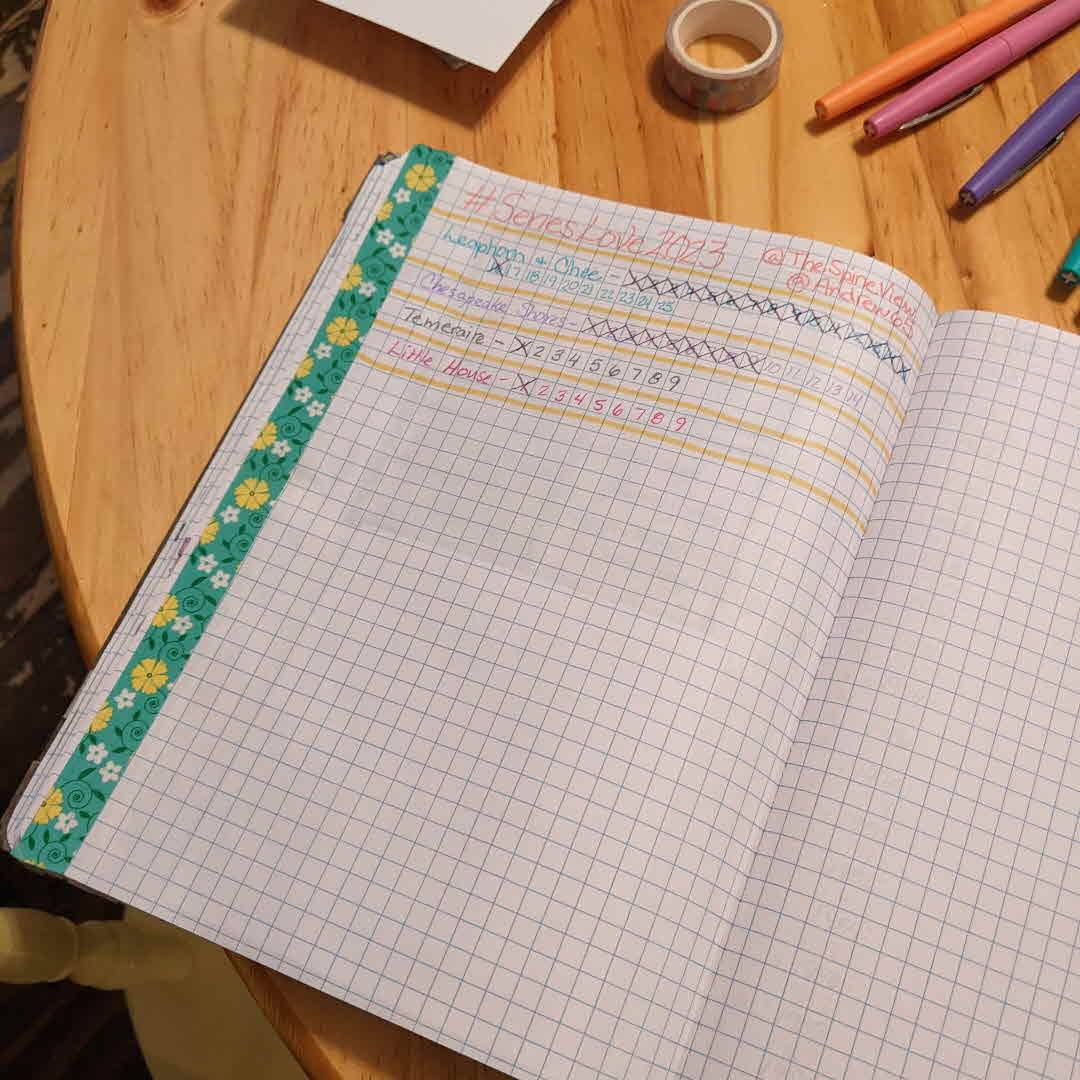 #SeriesLove2023 @TheSpineView
@Andrea065
Leaphorn & Chee - XXXXXXXXXXXXXXX
X 17 18 19 20 21 22 23 24 25
Chesapeake Shores - XXXXXXXXX 10 11 12 13 14
Temeraire - X 2 3 4 5 6 7 8 9
Little House - X 2 3 4 5 6 7 8 9